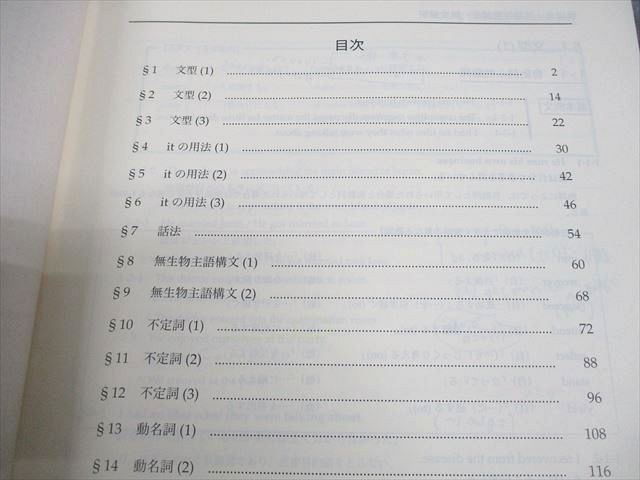 目次
§1 文型 (1) 2
§2 文型 (2) 14
§3 文型 (3) 22
§4 itの用法 (1) 30
§5 itの用法 (2) 42
§6 itの用法 (3) 46
§7 話法 54
§8 無生物主語構文 (1) 60
§9 無生物主語構文 (2) 68
§10 不定詞 (1) 72
§11 不定詞 (2) 88
§12 不定詞 (3) 96
§13 動名詞 (1) 108
§14 動名詞 (2) 116